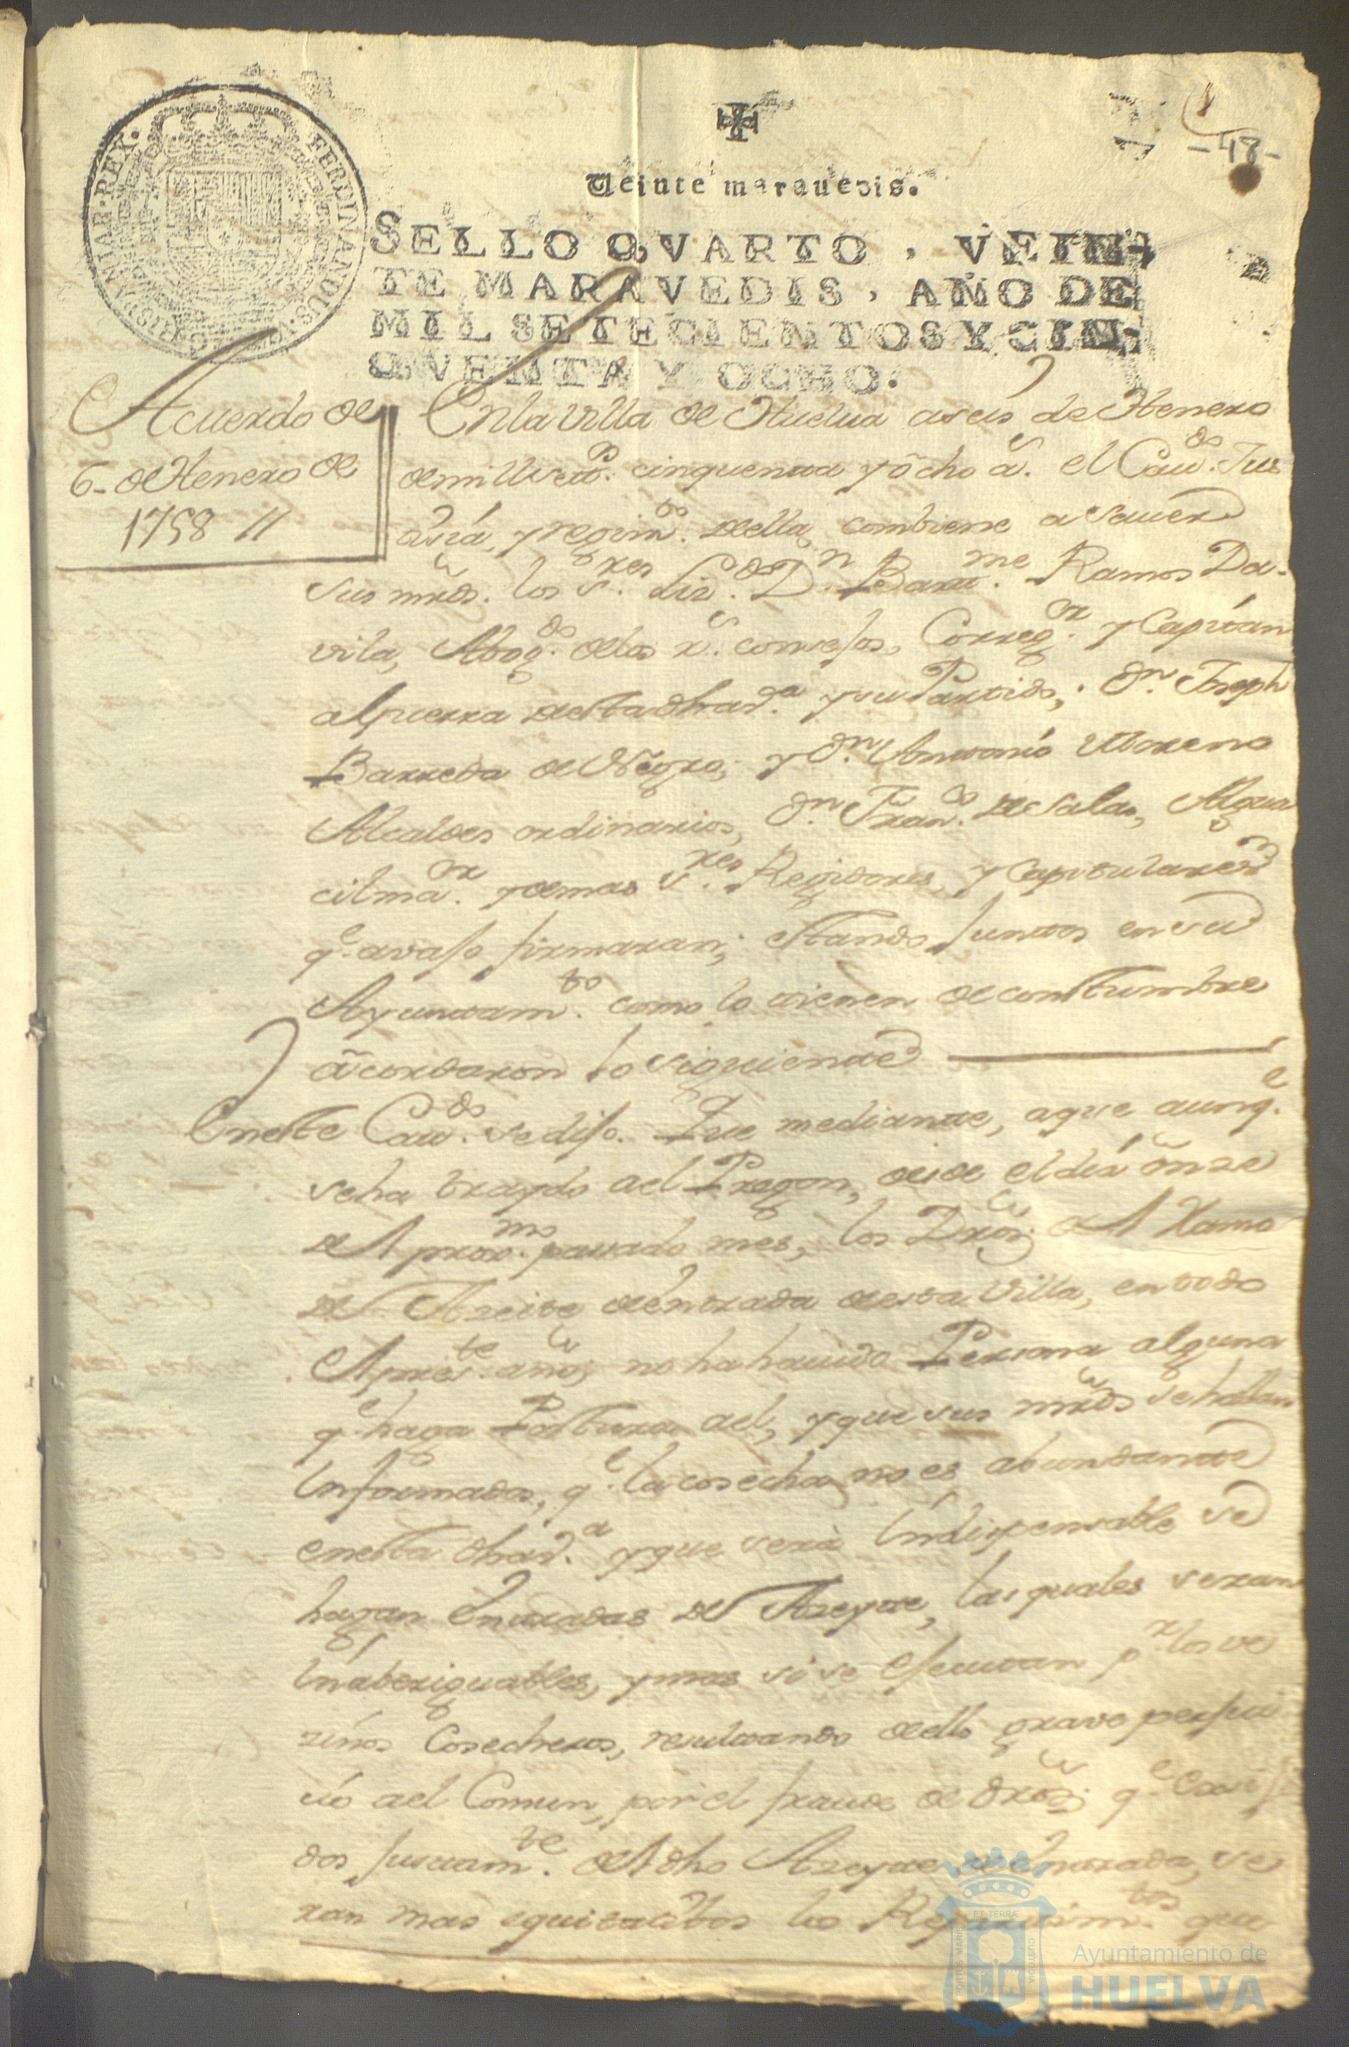 1
- 48 -
Veinte maravedis.
SELLO QVARTO, VEIN-
TE MARAVEDIS, AÑO DE
MIL SETECIENTOS Y CIN-
QVENTA Y OCHO.
HISPANIAR·REX· FERDINANDUS·
Acuerdo de
6- de Henero de
1758 //
En la Villa de Huelva a seis de Henero
de mill setos. cinquenta y ocho as. el Cavdo. Jus
ticia, y regimto. della, combiene a saver
sus mrds. los sres. Lizdo. Dn. Barme. Ramos Da-
vila, Abogdo. de los rs. consejos, Corregor. y Capitan
a guerra desta dha vª. y su Partido, dn. Joseph
Barreda de Negro, y dn. Antonio Moreno
Alcaldes ordinarios, dn. Franco. de Salas, Algua
cil maor. y demas sres. Regidores, y Capitulares
qe. avajo firmaran; estando juntos en su
Ayuntamto. como lo tienen de constumbre
acordaron lo siguiente
En este Cavdo. se dijo. Que mediante, a que aunqe.
se ha traydo a el Pregon, desde el dia onze
del proxmo. pasado mes, los Dros. del Ramo
del Azeite de entrada desta Villa, en todo
el preste. año, no ha havido Persona alguna
qe. haga Postura a el, y que sus mrds se hallan
Informados, qe. la cosecha no es abundante
en esta dha vª. y que sera Indispensable se
hagan Entradas del Azeyte, las quales seran
Inaberiguables, y mas si se ejecutan pr. los ve
zinos Cosecheros, resultando dello grave perjui
cio a el Comun, por el fraude de dros. qe.
dos juntamte. del dho Azeyte de Entrada, se
ran mas equitativos los Repartimtos. que
Ayuntamiento de
HUELVA